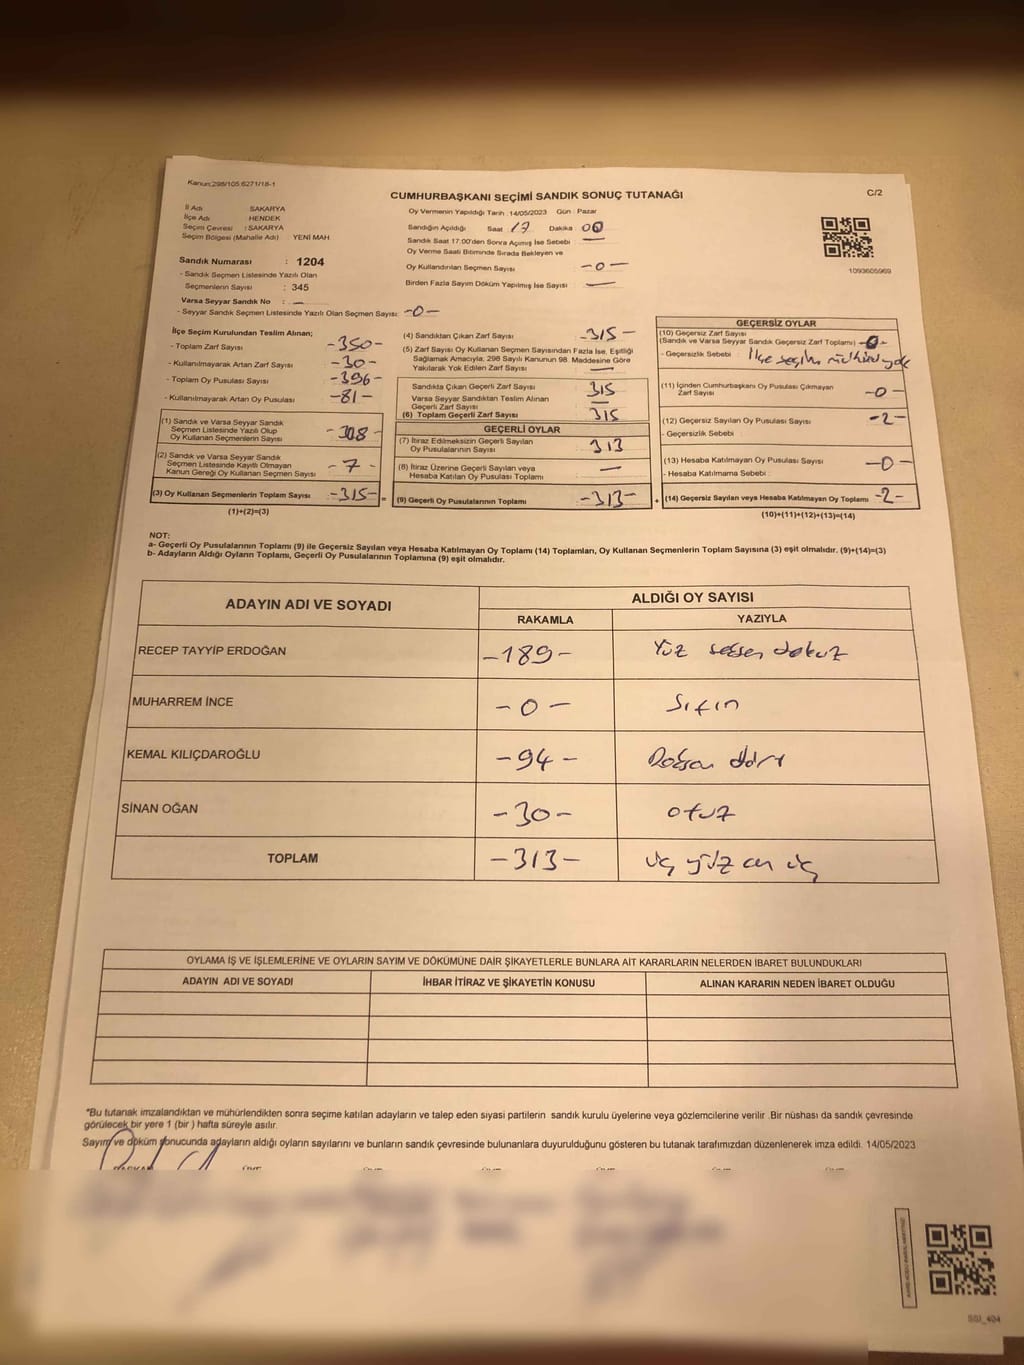 Kanun:298/105.6271/18-1
CUMHURBAŞKANI SEÇİMİ SANDIK SONUÇ TUTANAĞI
C/2
İl Adı SAKARYA
İlçe Adı HENDEK
Seçim Çevresi : SAKARYA
Seçim Bölgesi (Mahalle Adı) : YENİ MAH.
Sandık Numarası : 1204
- Sandık Seçmen Listesinde Yazılı Olan
Seçmenlerin Sayısı : 345
Varsa Seyyar Sandık No : —
- Seyyar Sandık Seçmen Listesinde Yazılı Olan Seçmen Sayısı: -0-
Oy Vermenin Yapıldığı Tarih : 14/05/2023 Gün : Pazar
Sandığın Açıldığı Saat 17 Dakika 00
Sandık Saat 17.00'den Sonra Açılmış İse Sebebi : —
Oy Verme Saati Bitiminde Sırada Bekleyen ve
Oy Kullandırılan Seçmen Sayısı -0-
Birden Fazla Sayım Döküm Yapılmış İse Sayısı : —
1093605969
İlçe Seçim Kurulundan Teslim Alınan;
- Toplam Zarf Sayısı -350-
- Kullanılmayarak Artan Zarf Sayısı -30-
- Toplam Oy Pusulası Sayısı -396-
- Kullanılmayarak Artan Oy Pusulası -81-
(1) Sandık ve Varsa Seyyar Sandık
Seçmen Listesinde Yazılı Olup
Oy Kullanan Seçmenlerin Sayısı -308-
(2) Sandık ve Varsa Seyyar Sandık
Seçmen Listesinde Kayıtlı Olmayan
Kanun Gereği Oy Kullanan Seçmen Sayısı -7-
(3) Oy Kullanan Seçmenlerin Toplam Sayısı -315- =
(1)+(2)=(3)
(4) Sandıktan Çıkan Zarf Sayısı -315-
(5) Zarf Sayısı Oy Kullanan Seçmen Sayısından Fazla İse, Eşitliği
Sağlamak Amacıyla, 298 Sayılı Kanunun 98. Maddesine Göre
Yakılarak Yok Edilen Zarf Sayısı —
Sandıkta Çıkan Geçerli Zarf Sayısı 315
Varsa Seyyar Sandıktan Teslim Alınan
Geçerli Zarf Sayısı —
(6) Toplam Geçerli Zarf Sayısı 315
GEÇERLİ OYLAR
(7) İtiraz Edilmeksizin Geçerli Sayılan
Oy Pusulalarının Sayısı 313
(8) İtiraz Üzerine Geçerli Sayılan veya
Hesaba Katılan Oy Pusulası Toplamı —
(9) Geçerli Oy Pusulalarının Toplamı -313- +
GEÇERSİZ OYLAR
(10) Geçersiz Zarf Sayısı
(Sandık ve Varsa Seyyar Sandık Geçersiz Zarf Toplamı) -0-
- Geçersizlik Sebebi : İlçe seçim mührü yok
(11) İçinden Cumhurbaşkanı Oy Pusulası Çıkmayan
Zarf Sayısı -0-
(12) Geçersiz Sayılan Oy Pusulası Sayısı -2-
- Geçersizlik Sebebi :
(13) Hesaba Katılmayan Oy Pusulası Sayısı -0-
- Hesaba Katılmama Sebebi :
(14) Geçersiz Sayılan veya Hesaba Katılmayan Oy Toplamı -2-
(10)+(11)+(12)+(13)=(14)
NOT:
a- Geçerli Oy Pusulalarının Toplamı (9) ile Geçersiz Sayılan veya Hesaba Katılmayan Oy Toplamı (14) Toplamları, Oy Kullanan Seçmenlerin Toplam Sayısına (3) eşit olmalıdır. (9)+(14)=(3)
b- Adayların Aldığı Oyların Toplamı, Geçerli Oy Pusulalarının Toplamına (9) eşit olmalıdır.
ADAYIN ADI VE SOYADI ALDIĞI OY SAYISI
RAKAMLA YAZIYLA
RECEP TAYYİP ERDOĞAN -189- Yüz seksen dokuz
MUHARREM İNCE -0- Sıfır
KEMAL KILIÇDAROĞLU -94- Doksan dört
SİNAN OĞAN -30- otuz
TOPLAM -313- üç yüz on üç
OYLAMA İŞ VE İŞLEMLERİNE VE OYLARIN SAYIM VE DÖKÜMÜNE DAİR ŞİKAYETLERLE BUNLARA AİT KARARLARIN NELERDEN İBARET BULUNDUKLARI
ADAYIN ADI VE SOYADI İHBAR İTİRAZ VE ŞİKAYETİN KONUSU ALINAN KARARIN NEDEN İBARET OLDUĞU
*Bu tutanak imzalandıktan ve mühürlendikten sonra seçime katılan adayların ve talep eden siyasi partilerin sandık kurulu üyelerine veya gözlemcilerine verilir .Bir nüshası da sandık çevresinde
görülecek bir yere 1 (bir ) hafta süreyle asılır.
Sayım ve döküm sonucunda adayların aldığı oyların sayılarını ve bunların sandık çevresinde bulunanlara duyurulduğunu gösteren bu tutanak tarafımızdan düzenlenerek imza edildi. 14/05/2023